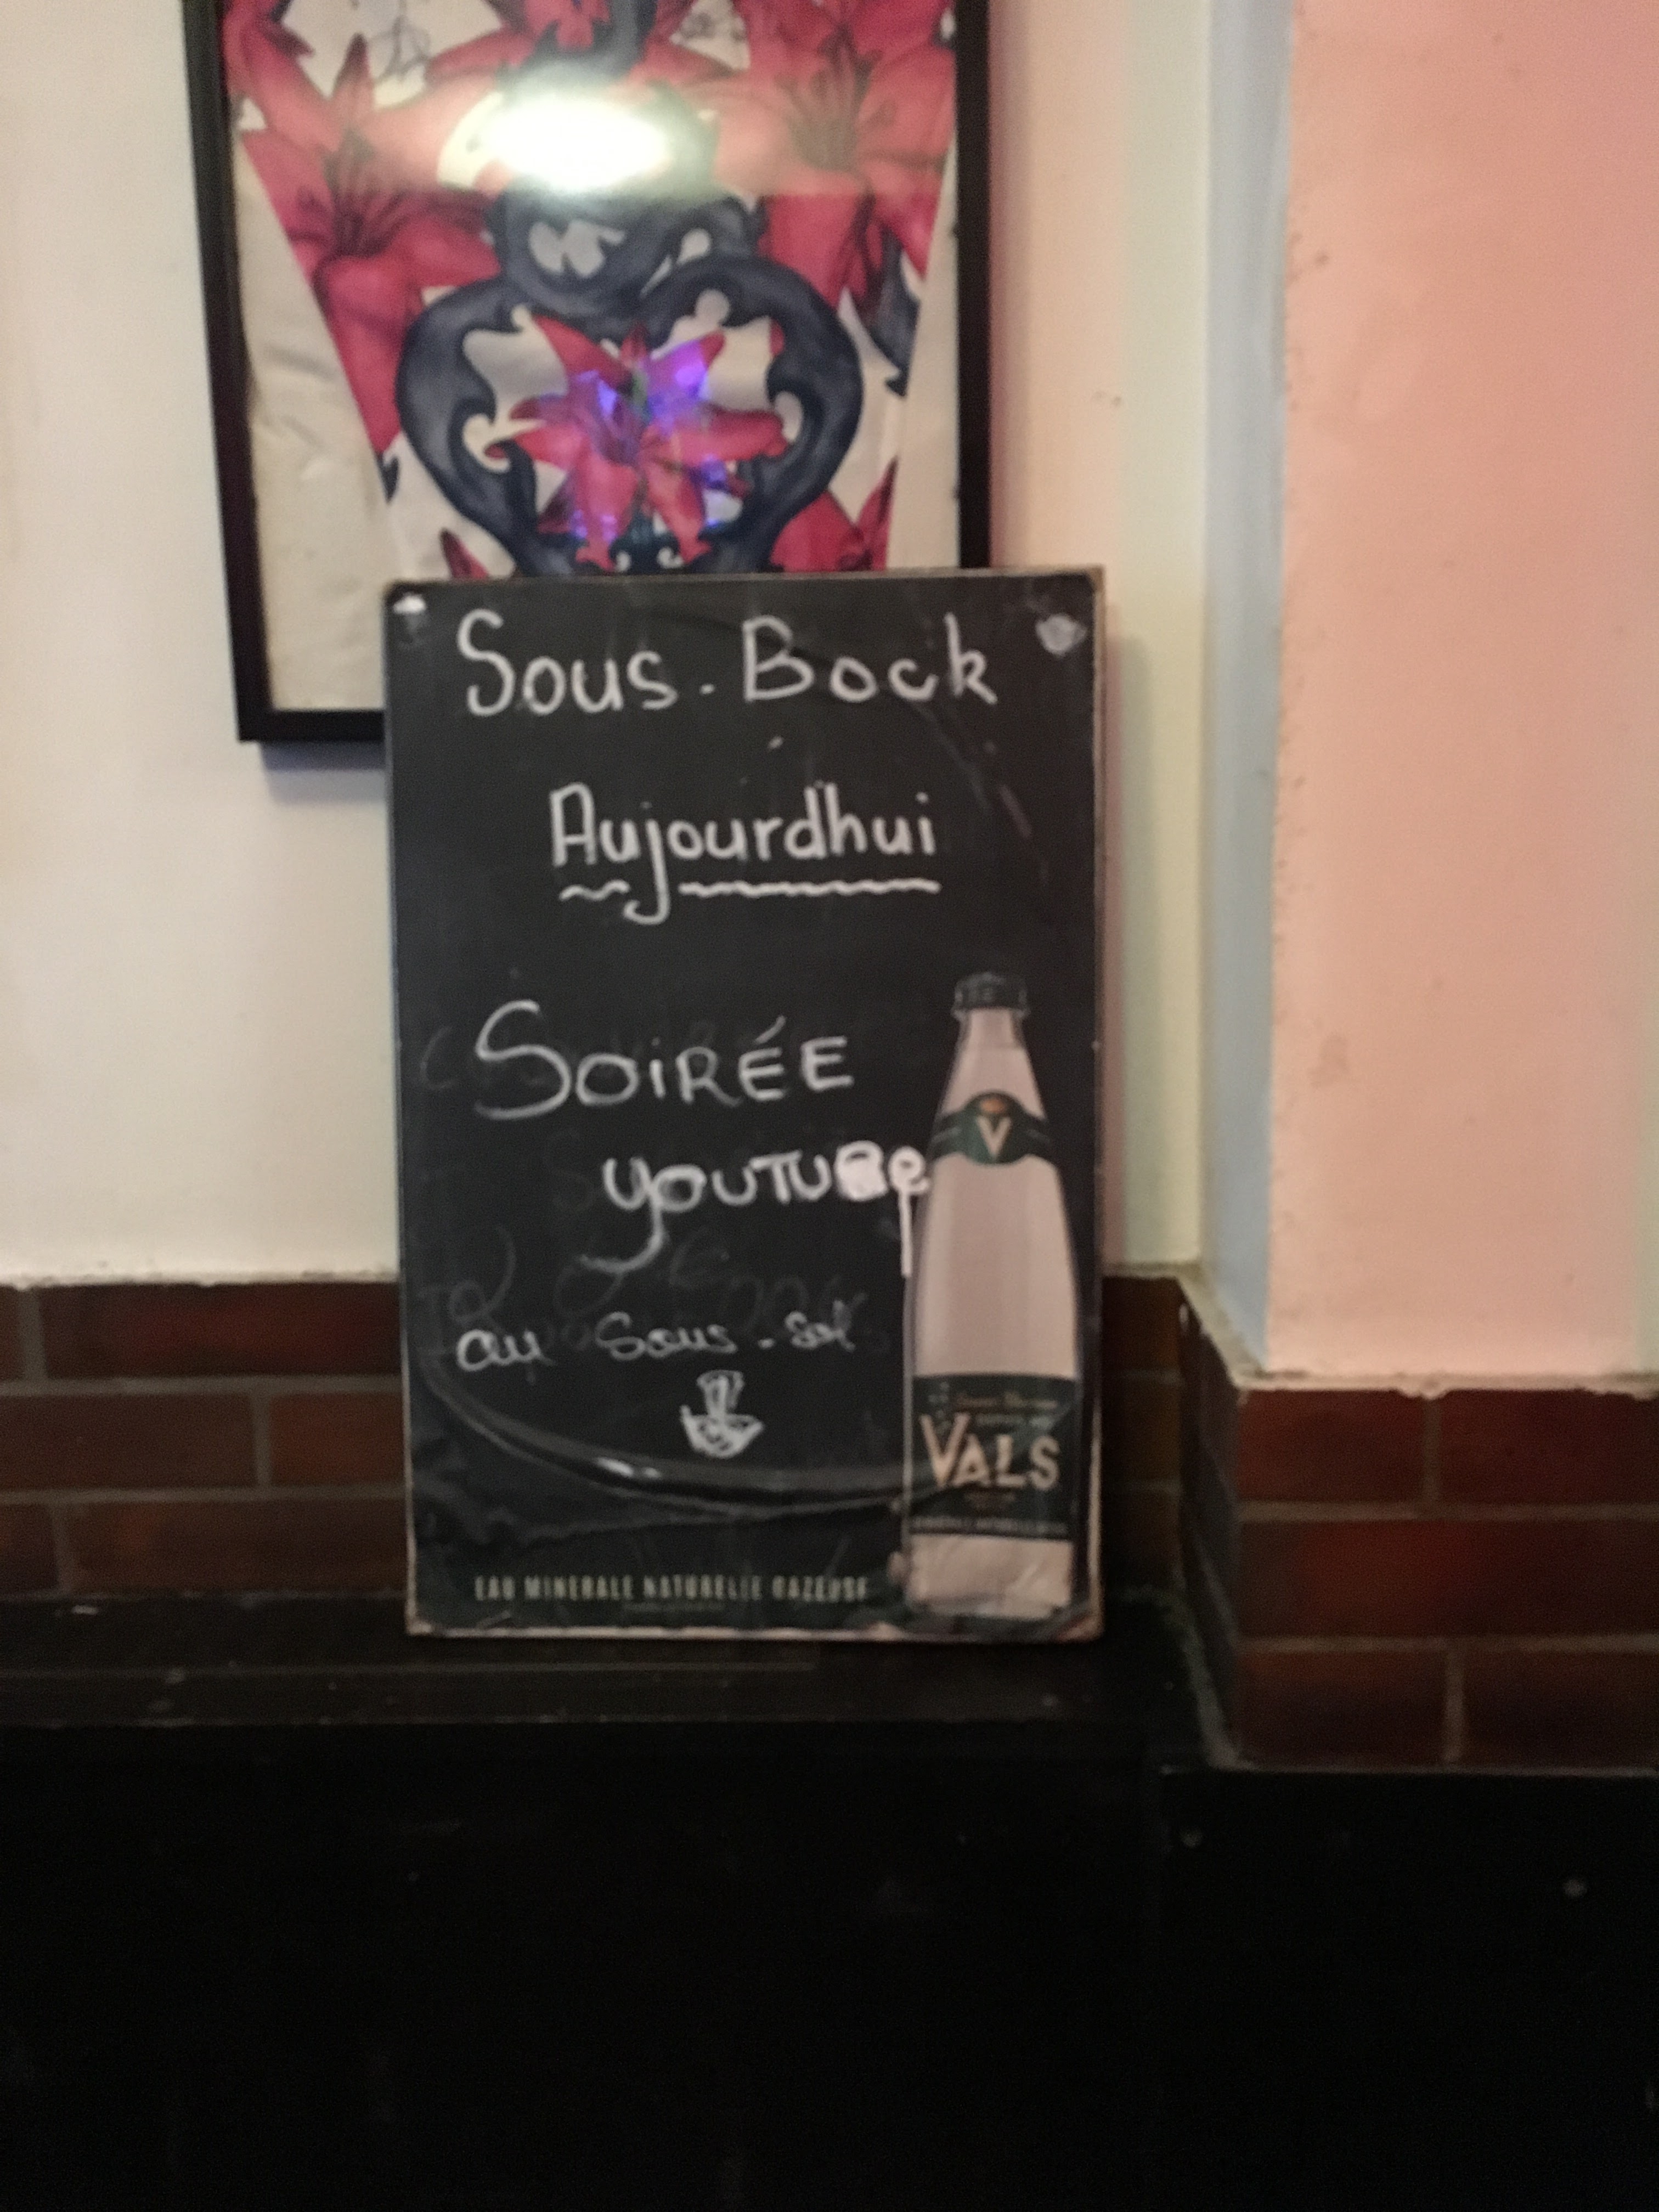 Sous-Bock
Aujourd'hui
SOIRÉE
YOUTUBe
au Sous-sol
V
VALS
EAU MINERALE NATURELLE GAZEUSE